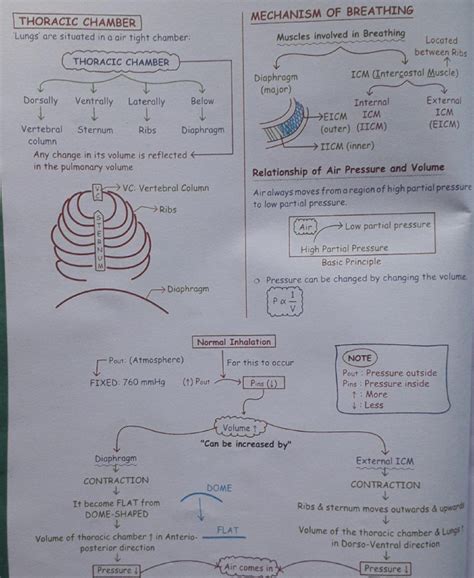 THORACIC CHAMBER
Lungs are situated in a air tight chamber:
THORACIC CHAMBER
Dorsally Ventrally Laterally Below
Vertebral column Sternum Ribs Diaphragm
Any change in its volume is reflected
in the pulmonary volume
VC
VC: Vertebral Column
Ribs
STERNUM
Diaphragm
MECHANISM OF BREATHING
Muscles involved in Breathing
Located
between Ribs
Diaphragm
(major)
ICM (Intercostal Muscle)
Internal
ICM
(IICM)
External
ICM
(EICM)
EICM
(outer)
IICM (inner)
Relationship of Air Pressure and Volume
Air always moves from a region of high partial pressure
to low partial pressure.
Air → Low partial pressure
High Partial Pressure
Basic Principle
Pressure can be changed by changing the volume
P ∝ 1/V
Normal Inhalation
Pout: (Atmosphere)
For this to occur
FIXED: 760 mmHg (↑) Pout Pins (↓)
NOTE
Pout : Pressure outside
Pins : Pressure inside
↑ : More
↓ : Less
Volume ↑
"Can be increased by"
Diaphragm
CONTRACTION
It become FLAT from
DOME-SHAPED
DOME
FLAT
Volume of thoracic chamber ↑ in Anterio-
posterior direction
Pressure ↓
External ICM
CONTRACTION
Ribs & sternum moves outwards & upwards
Volume of the thoracic chamber & Lungs ↑
in Dorso-Ventral direction
Pressure ↓
Air comes in